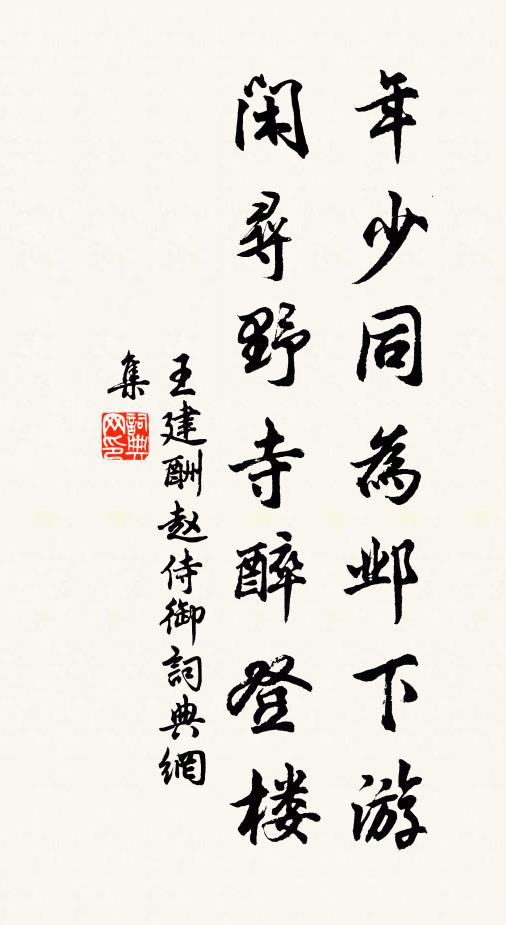 年少同為邺下游
闲尋野寺醉登楼
王建酬赵侍御詞典網
集
詞典网印